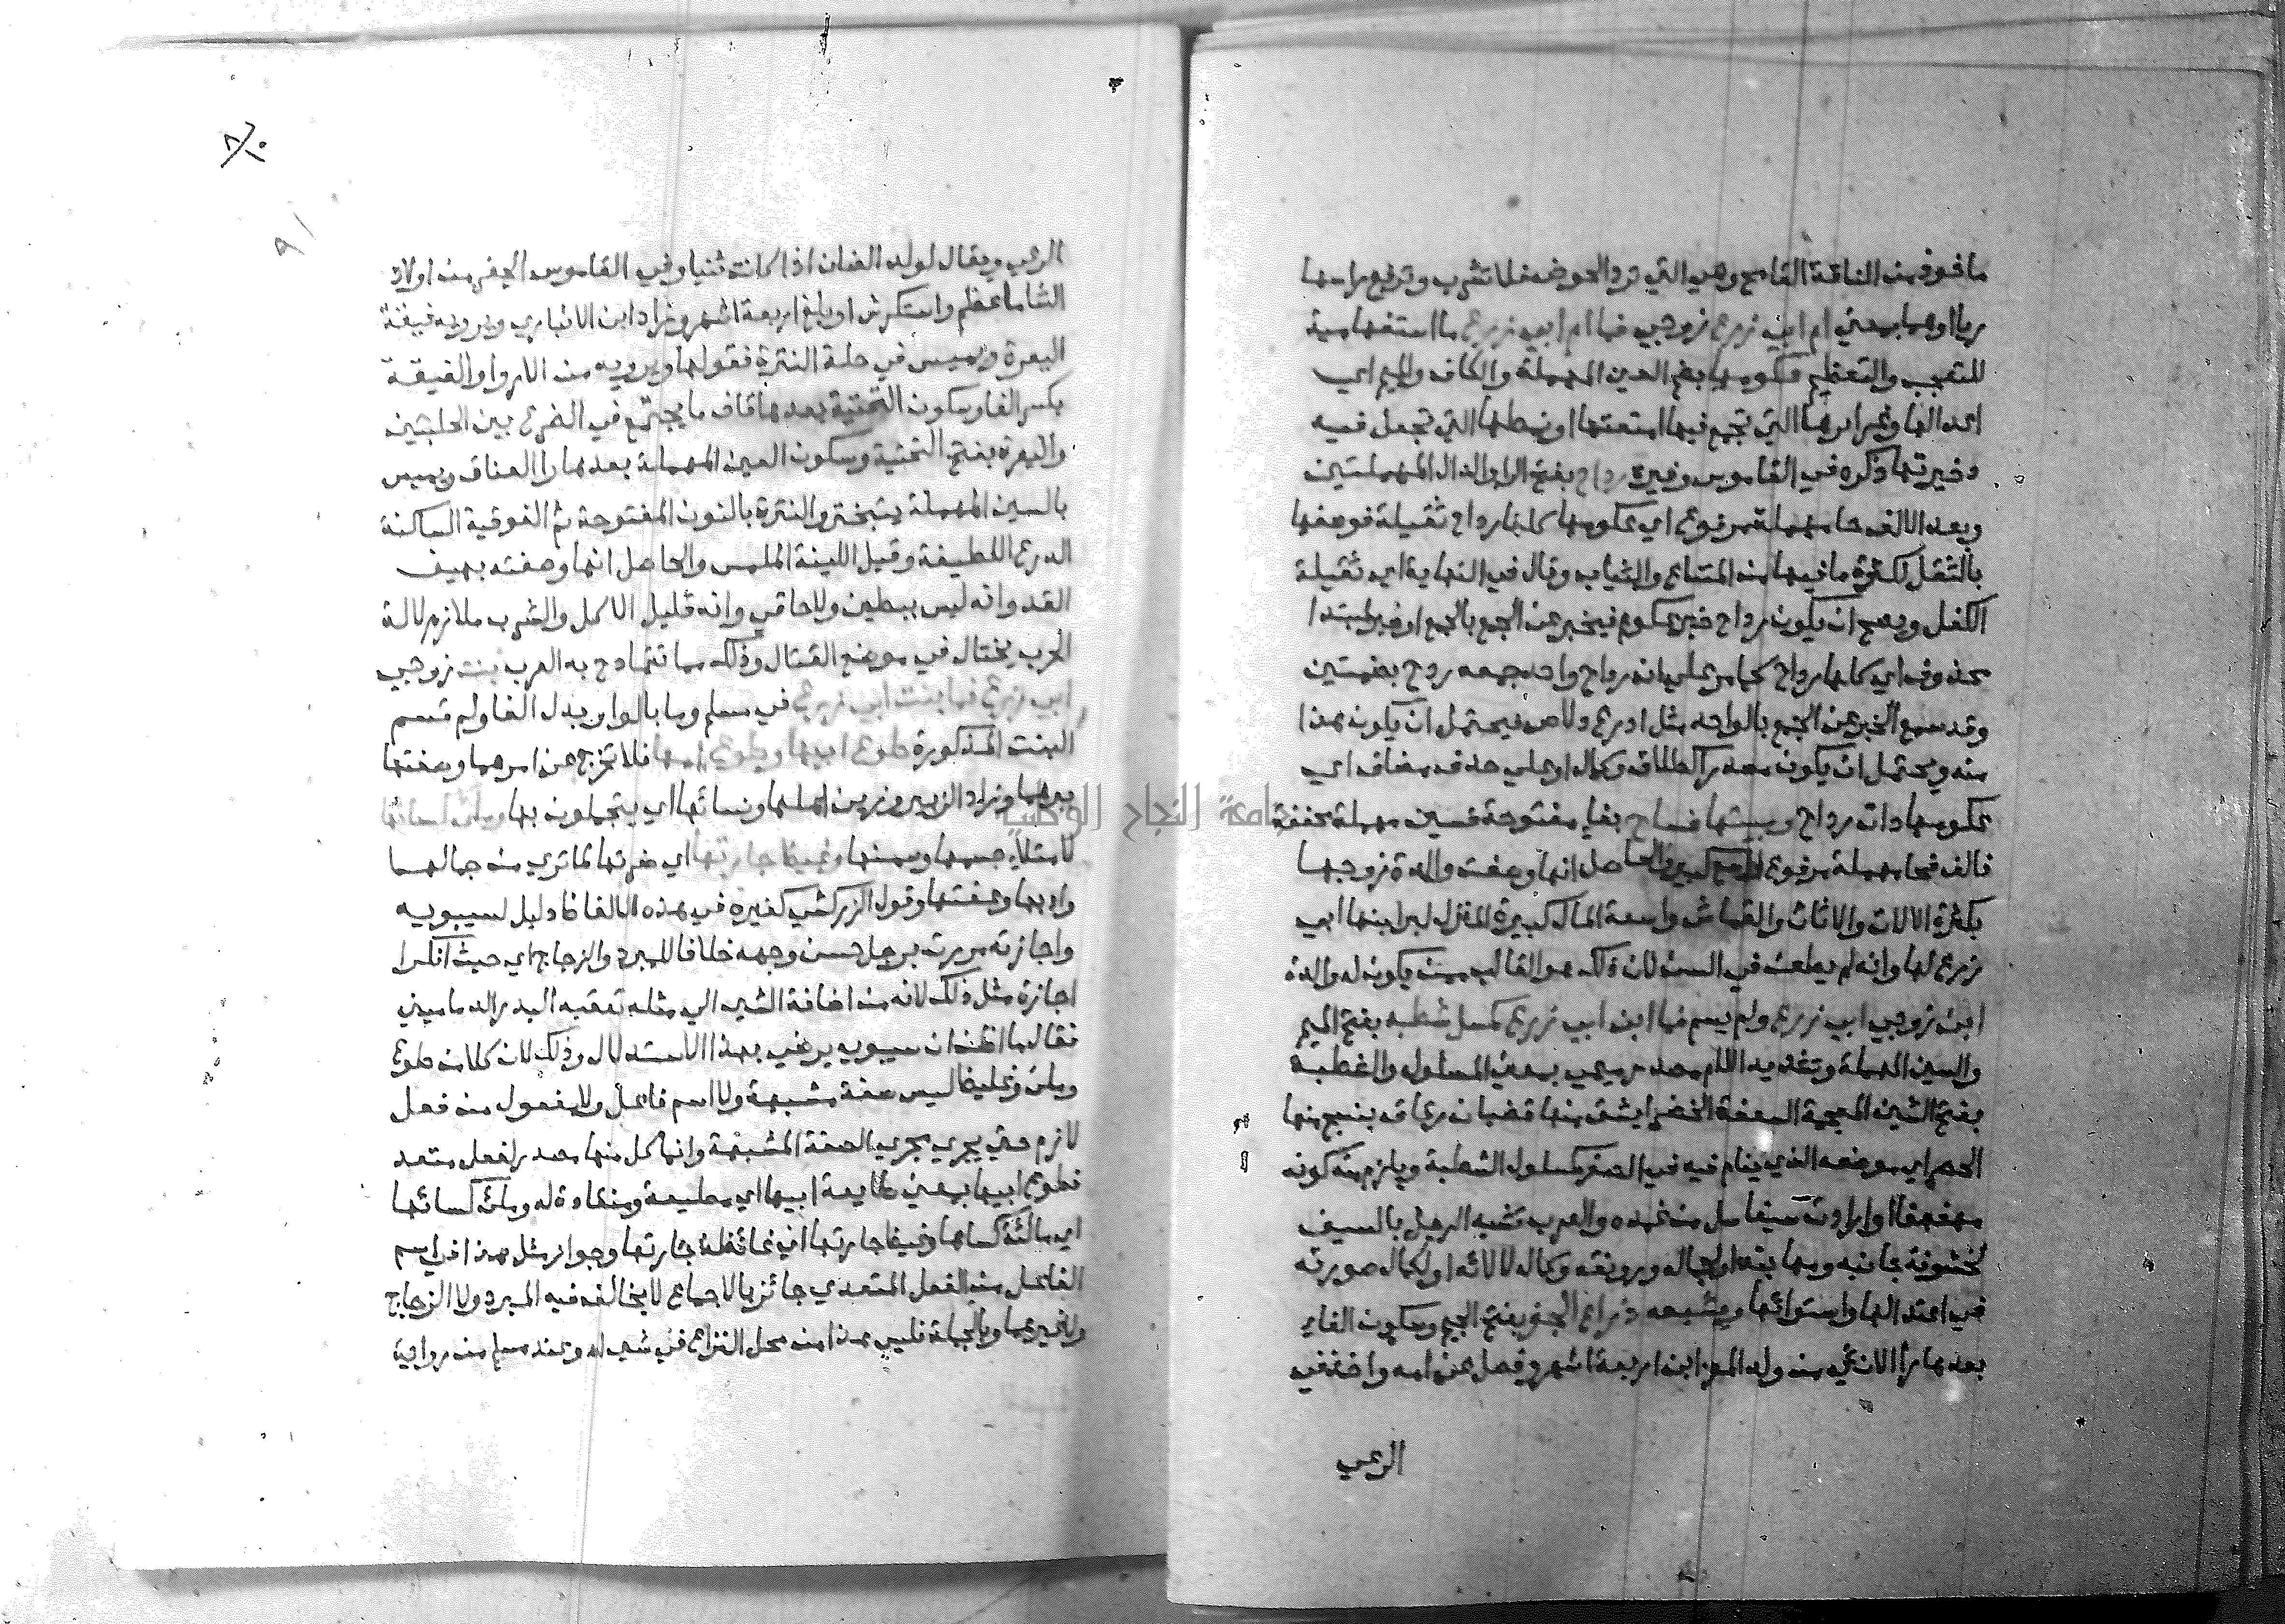 ماخوذ من الناقة القامح وهي التي ترد الحوض فلا تشرب وترفع راسها
ريا اوهما بمعني ام ابي زرع زوجي فما ام ابي زرع ما استفهامية
للتعجب والتعظيم عكومها بضم العين المهملة والكاف والميم اي
اعدالها وغرايرها التي تجمع فيها امتعتها او نمطها التي تجعل فيه
ذخيرتها ذكره في القاموس وغيره رداح بفتح الرا والدال المهملتين
وبعد الالف حا مهملة مرفوع اي عكومها كلها رداح ثقيلة فوصفها
بالثقل لكثرة ما فيها من المتاع والثياب وقال في النهاية اي ثقيلة
الكفل ويصح ان يكون رداح خبر عكوم فيخبر عن الجمع بالجمع او خبر لمبتدا
محذوف اي كلها رداح كما مر علي ان رداح واحد جمعه ردح بضمتين
وقد سمع الخبر عن الجمع بالواحد مثل ادرع دلاص فيحتمل ان يكون هذا
منه ويحتمل ان يكون مصدرا كالطلاق وكمال او علي حذف مضاف اي
عكومها ذات رداح وبيتها فساح بفاء مفتوحة فسين مهملة مخففة
فالف فحا مهملة مرفوع اي واسع كبير والحاصل انها وصفت والدة زوجها
بكثرة الالات والاثاث والقماش واسعة المال كبيرة المنزل لبر ابنها ابي
زرع لها وانه لم يطعن في السن لان ذلك هو الغالب ممن يكون له والدة
ابن زوجي ابي زرع ولم يسم فما ابن ابي زرع كمسل شطبه بفتح الميم
والسين المهملة وتشديد اللام مصدر ميمي بمعني المسلول والشطبه
بفتح الشين المعجمة السعفة الخضرا يشق منها قضبان رقاق ينسج منها
الحصر اي موضعه الذي ينام فيه في الصغر كمسلول الشطبة ويلزم منه كونه
مهفهفا او ارادت سيفا سل من غمده والعرب تشبه الرجل بالسيف
لخشونة جانبه ومهابته او لجماله ورونقه وكمال لالائه او لكمال صورته
في اعتدالها واستوائها ويشبعه ذراع الجفر بفتح الجيم وسكون الفاء
بعدها را الانثي من ولد المعز ابن اربعة اشهر وفصل عن امه واخذ في
الرعي
الرعي ويقال لولد الضان اذا كانت ثنيا وفي القاموس الجفر من اولاد
الشا ما عظم واستكرش او بلغ اربعة اشهر وزاد ابن الانباري ويرويه فيقة
اليعرة ويميس في حلة النترة فقولها ويرويه من الاروا والفيقة
بكسر الفا وسكون التحتية بعدها قاف ما يجتمع في الضرع بين الحلبتين
واليعرة بفتح التحتية وسكون العين المهملة بعدها را العناق ويميس
بالسين المهملة يتبختر والنترة بالنون المفتوحة ثم الفوقية الساكنة
الدرع اللطيفة وقيل اللينة الملمس والحاصل انها وصفته بهيف
القد وانه ليس ببطين ولا جافي وانه قليل الاكل والشرب ملازم لالة
الحرب يختال في موضع القتال وذلك مما تتمادح به العرب بنت زوجي
ابي زرع فما بنت ابي زرع في مسلم وما بالواو بدل الفا ولم تسم
البنت المذكورة طوع ابيها وطوع امها فلا تخرج عن امرهما وصفتها
ببرهما وزاد الزبير وزين اهلها ونسائها اي يتجملون بها وملئ كسائها
لامتلاء جسمها وسمنها وغيظ جارتها اي ضرتها لما تري من جمالها
وادبها وعفتها وقول الزركشي كغيره في هذه الالفاظ دليل لسيبويه
واجازته مررت برجل حسن وجهه خلافا للمبرد والزجاج اي حيث انكرا
اجازة مثل ذلك لانه من اضافة الشي الي مثله تعقبه البدر الدماميني
فقال ما اظن ان سيبويه يرضي بهذا الاستدلال وذلك لان كلا من طوع
وملئ وغيظ ليس صفة مشبهة ولا اسم فاعل ولا مفعول من فعل
لازم حتي يجري مجري الصفة المشبهة وانما كل منها مصدر لفعل متعد
فطوع ابيها بمعني طايعة ابيها اي مطيعة ومنقادة له وملئ كسائها
اي مالئة كساها وغيظ جارتها اي غائظة جارتها وجواز مثل هذا في اسم
الفاعل من الفعل المتعدي جائز بالاجماع لا يخالف فيه المبرد ولا الزجاج
ولا غيرهما وبالجملة فليس هذا من محل النزاع في شي اه وعند مسلم من رواية
جامعة النجاح الوطنية